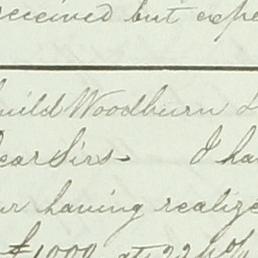 received but expe
uild Woodburn
ear Sirs. I ha
ur having realize
£1000 at 22